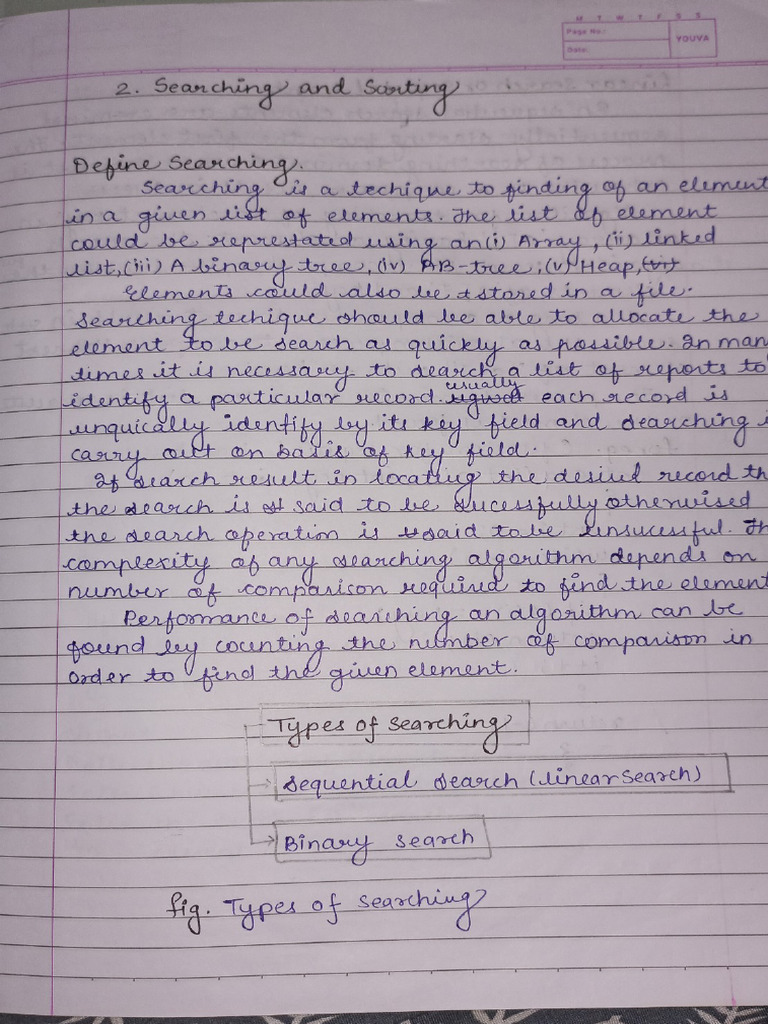 M T W T F S S
Page No.:
Date:
YOUVA
2. Searching and Sorting
Define Searching.
Searching is a techique to finding of an element
in a given list of elements. The list of element
could be represtated using an (i) Array, (ii) linked
list, (iii) A binary tree, (iv) AB-tree, (v) Heap, (vi)
Elements could also be stored in a file.
Searching techique should be able to allocate the
element to be search as quickly as possible. In man
times it is necessary to search a list of reports to
usually
identify a particular record. each record is
unquically identify by its key field and searching i
carry out on basis of key field.
If search result in locating the desired record th
the search is said to be sucessfully otherwised
the search operation is said to be unsucessful. Th
complexity of any searching algorithm depends on
number of comparison required to find the element
Performance of searching an algorithm can be
found by counting the number of comparison in
order to find the given element.
Types of searching
Sequential search (linear search)
Binary search
fig. Types of searching